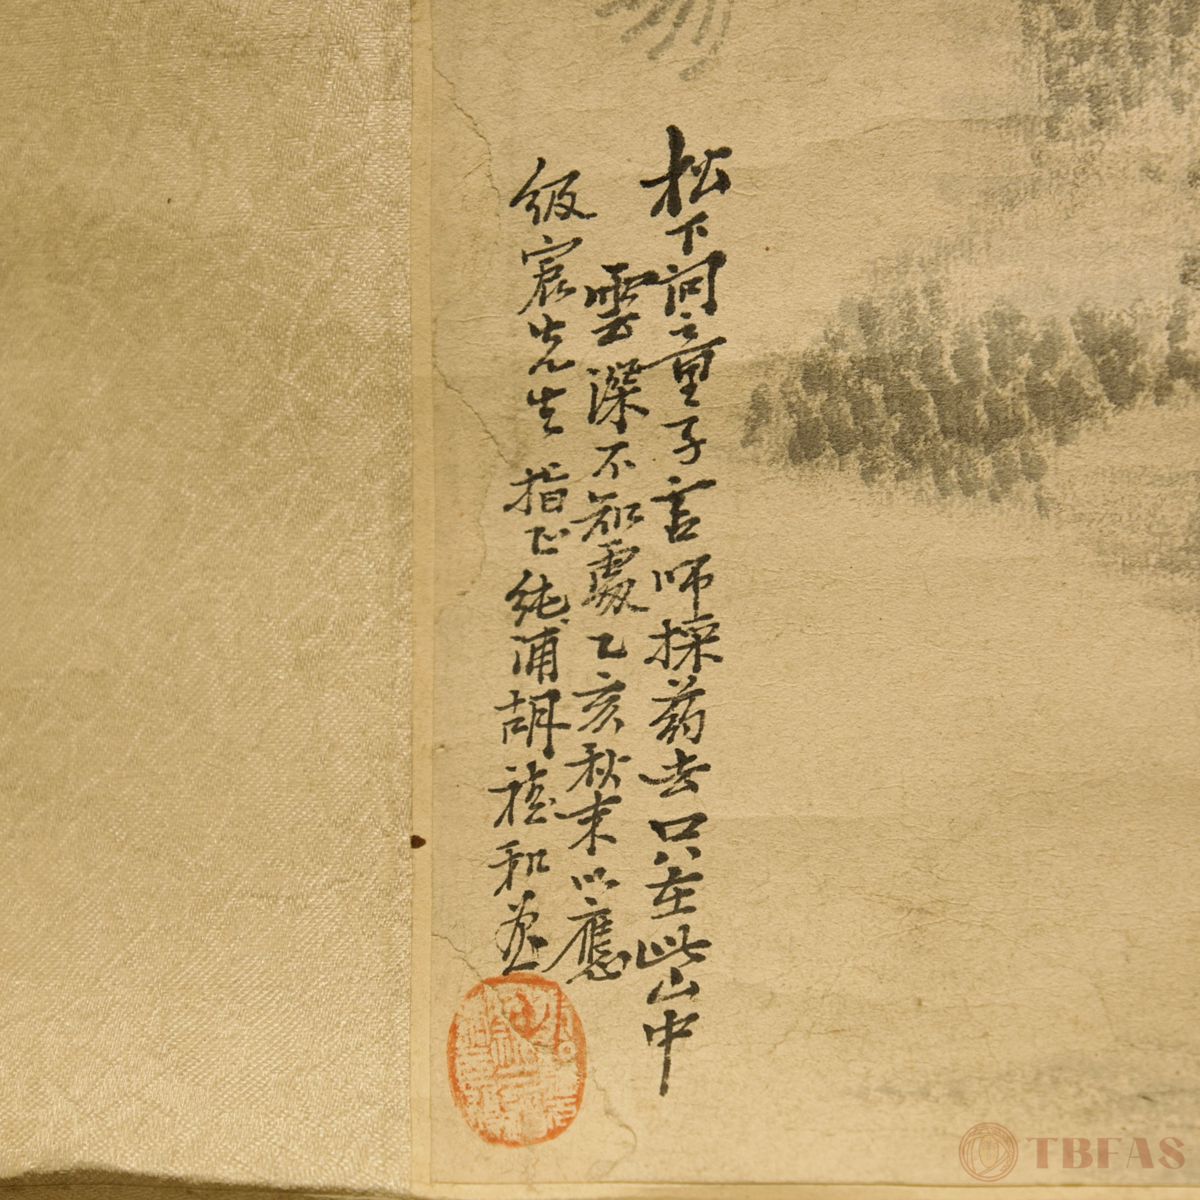 松下问童子言师採药去只在此山中
雲深不知處乙亥秋末以應
级宸先生指正纯浦胡禧和
TBFAS